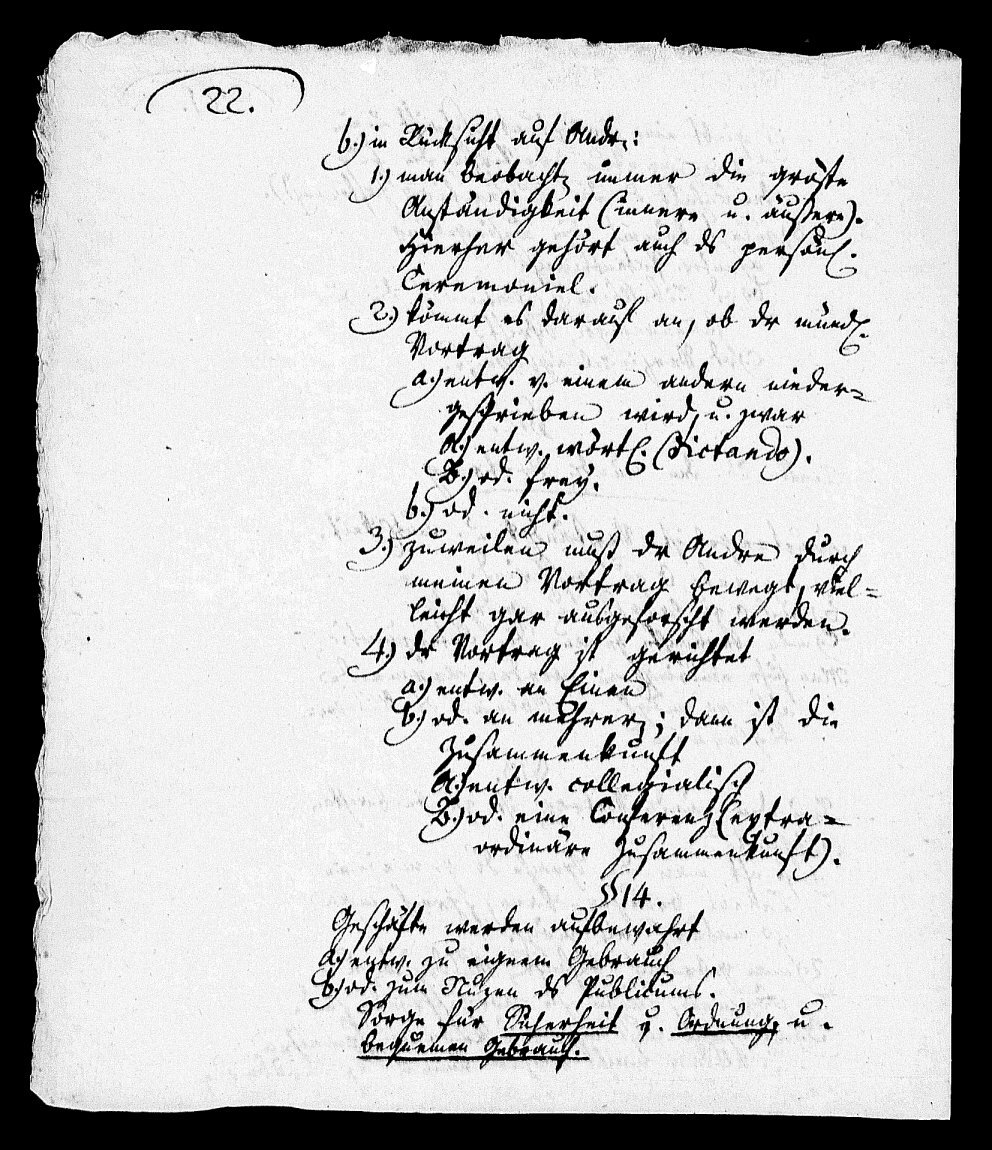 22.
b.) in Rücksicht auf Andr.:
1.) man beobacht. immer die gröste
Anständigkeit (innere u. äußere).
Hierher gehört auch ds persönl.
Ceremoniel.
2.) kömmt es darauf an, ob dr mündl.
Vortrag
a.) entw. v. einem andern nieder-
geschrieben wird, u. zwar
A.) entw. wörtl. (Dictando).
B.) od. frey.
b.) od. nicht.
3.) zuweilen muß dr Andre durch
meinen Vortrag bewegt, viel-
leicht gar ausgeforscht werden.
4.) dr Vortrag ist gerichtet
a.) entw. an Einen
b.) od. an mehrer.; dann ist die
Zusammenkunft
A.) entw. collegialisch
B.) od. eine Conferenz (extra-
ordinäre Zusammenkunft).
§14.
Geschäfte werden aufbewahrt
a.) entw. zu eignem Gebrauch
b.) od. zum Nuzen ds Publicums.
Sorge für Sicherheit u. Ordnung, u.
bequemen Gebrauch.